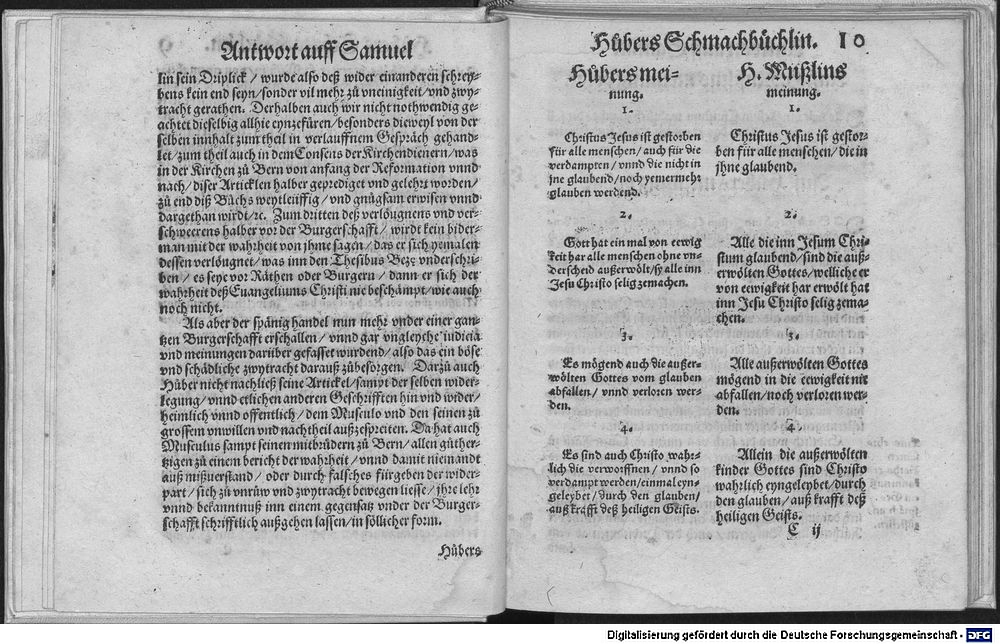 Antwort auff Samuel
lin sein Driplick / wurde also deß wider einanderen schrey-
bens kein end seyn / sonder vil mehr zů vneinigkeit / vnd zwy-
tracht gerathen. Derhalben auch wir nicht nothwendig ge-
achtet dieselbig allhie eynzefüren / besonders dieweyl von der
selben innhalt zum theil in verlauffnem Gespräch gehand-
let / zum theil auch in dem Consens der Kirchendieneren / was
in der Kirchen zů Bern von anfang der Reformation vnnd
nach / diser Articklen halber geprediget vnd gelehrt worden /
zů end diß Bůchs weytleüffig / vnd gnůgsam erwisen vnnd
dargethan wirdt / ꝛc. Zum dritten deß verlöugnens vnd ver-
schweerens halber vor der Burgerschafft / wirdt kein bider-
man mit der wahrheit von jhme sagen / das er sich yemalen
dessen verlöugnet / was inn den Thesibus Bezę vnderschri-
ben / es seye vor Räthen oder Burgern / dann er sich der
wahrheit deß Euangeliums Christi nie beschämpt / wie auch
noch nicht.
Als aber der spänig handel nun mehr vnder einer gan-
tzen Burgerschafft erschallen / vnnd gar vngleyche iudicia
vnd meinungen darüber gefasset wurdend / also das ein böse
vnd schädliche zwytracht darauß zůbesorgen. Darzů auch
Hůber nicht nachließ seine Artickel / sampt der selben wider-
legung / vnnd etlichen anderen Geschrifften hin vnd wider /
heimlich vnnd offentlich / dem Musculo vnd den seinen zů
grossem vnwillen vnd nachtheil außzespreiten. Da hat auch
Musculus sampt seinen mitbrüdern zů Bern / allen gůther-
tzigen zů einem bericht der wahrheit / vnnd damit niemandt
auß mißuerstand / oder durch falsches fürgeben der wider-
part / sich zů vnrůw vnd zwytracht bewegen liesse / jhre lehr
vnnd bekanntnuß inn einem gegensatz vnder der Burger-
schafft schrifftlich außgehen lassen / in söllicher form.
Hůbers
Hůbers Schmachbüchlin. 10
Hůbers mei-
nung.
1.
Christus Jesus ist gestorben
für alle menschen / auch für die
verdampten / vnnd die nicht in
jne glaubend / noch yemermehr
glauben werdend.
2.
Gott hat ein mal von eewig
keit har alle menschen ohne vn-
derscheid außerwölt / sy alle inn
Jesu Christo selig zemachen.
3.
Es mögend auch die außer-
wölten Gottes vom glauben
abfallen / vnnd verloren wer-
den.
4.
Es sind auch Christo wahr-
lich die verworffnen / vnnd so
verdampt werden / einmal eyn-
geleybet / durch den glauben /
auß krafft deß heiligen Geists.
H. Mußlins
meinung.
1.
Christus Jesus ist gestor-
ben für alle menschen / die in
jhne glaubend.
2.
Alle die inn Jesum Chri-
stum glaubend / sind die auß-
erwölten Gottes / welliche er
von eewigkeit har erwölt hat
inn Jesu Christo selig zema-
chen.
3.
Alle außerwölten Gottes
mögend in die eewigkeit nit
abfallen / noch verloren wer-
den.
4.
Allein die außerwölten
kinder Gottes sind Christo
wahrlich eyngeleybet / durch
den glauben / auß krafft deß
heiligen Geists.
C ij
Digitalisierung gefördert durch die Deutsche Forschungsgemeinschaft - DFG